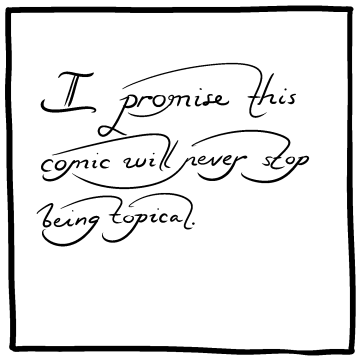 I promise this
comic will never stop
being topical.